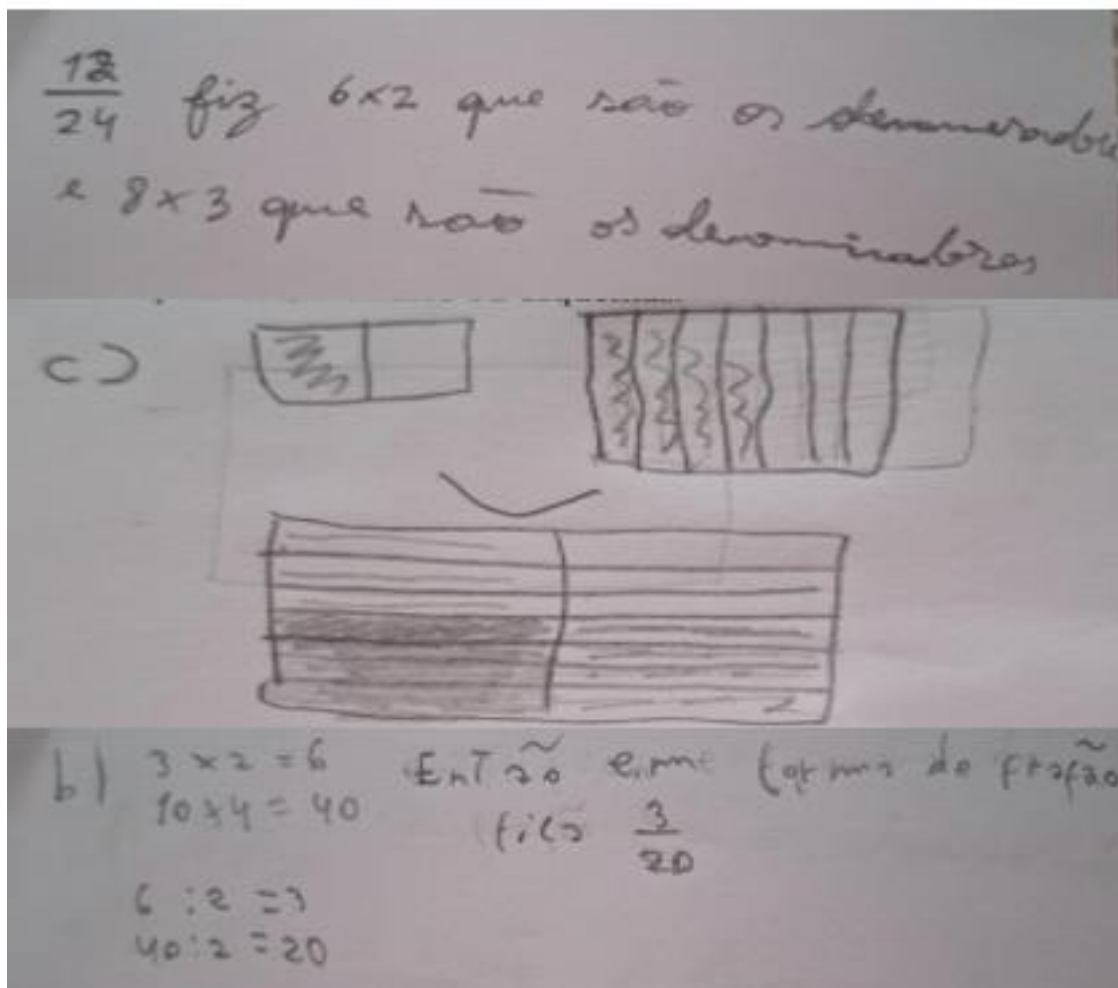 12
24 fiz 6×2 que são os denomeradores
e 8×3 que são os denominadores
c)
b) 3 × 2 = 6 Então em forma de fração
10 × 4 = 40 fica 3
20
6 : 2 = 3
40 : 2 = 20